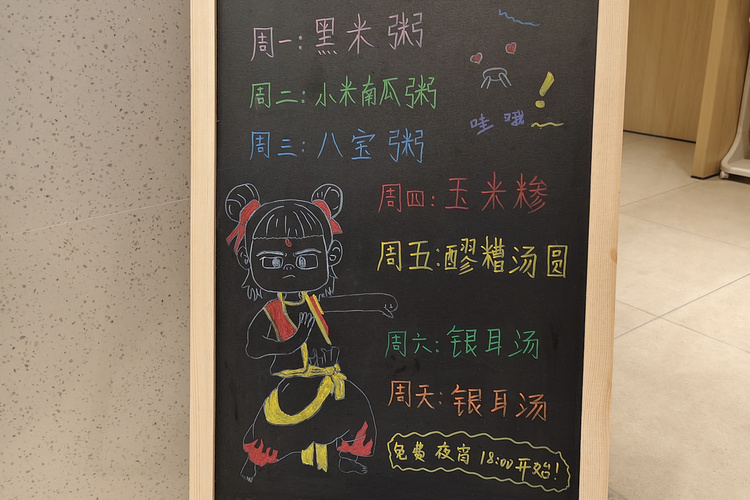 周一:黑米粥
周二:小米南瓜粥
周三:八宝粥
哇哦
周四:玉米糁
周五:醪糟汤圆
周六:银耳汤
周天:银耳汤
免费夜宵18:00开始!